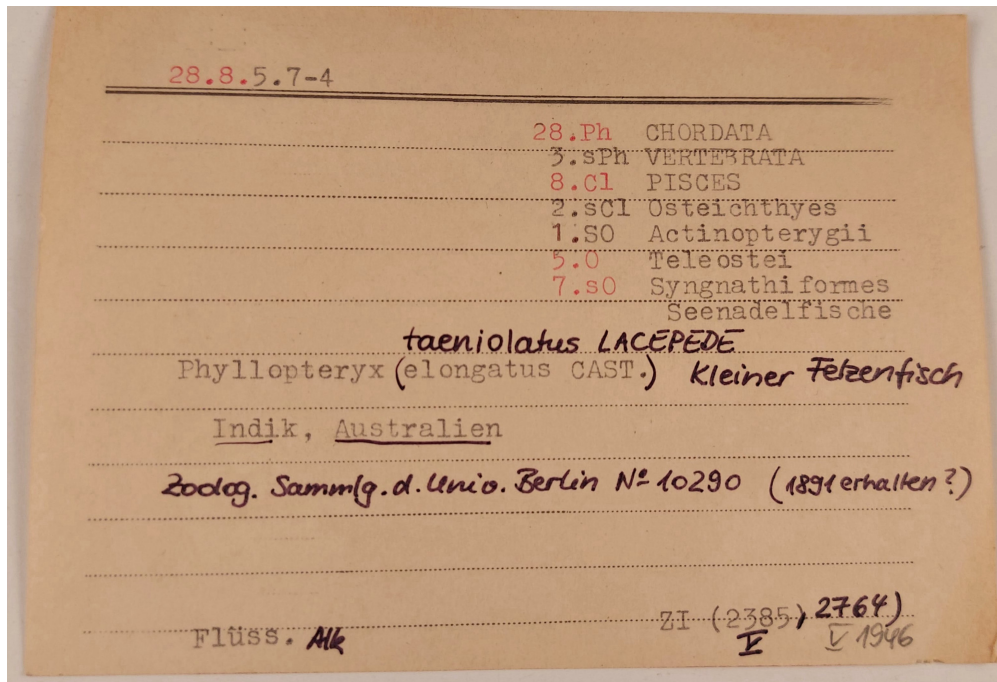 28.8.5.7-4
28.Ph CHORDATA
3.sPh VERTEBRATA
8.Cl PISCES
2.sCl Osteichthyes
1.SO Actinopterygii
5.O Teleostei
7.sO Syngnathiformes
Seenadelfische
taeniolatus LACEPEDE
Phyllopteryx (elongatus CAST.) Kleiner Fetzenfisch
Indik, Australien
Zoolog. Sammlg. d. Univ. Berlin Nº 10290 (1891 erhalten?)
ZI (2385, 2764)
Flüss. Alk V V 1946